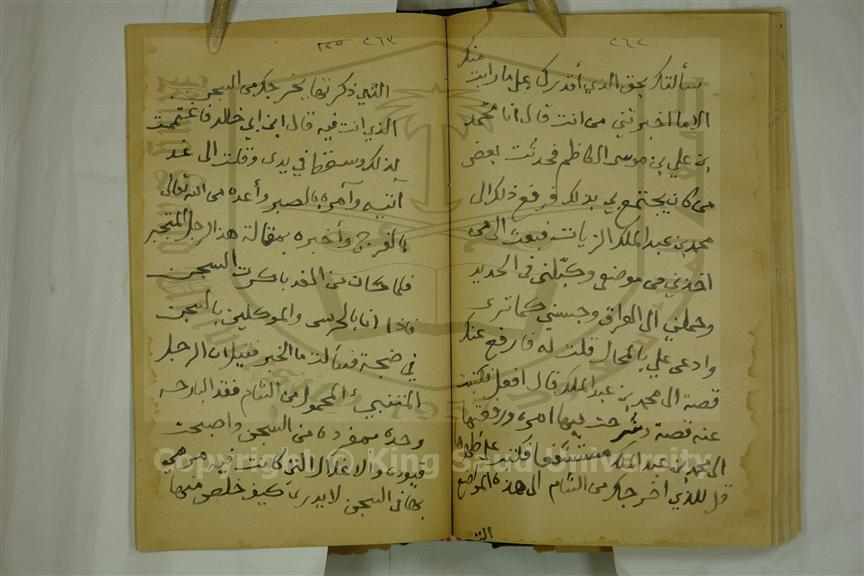 ٢٦٢
منك
سألتك بحق الذي أقدرك على ما رايت
الا ما اخبرتني من انت قال انا محمد
بن علي بن موسى الكاظم فحدثت بعض
من كان يجتمع بي بذلك فرفع ذلك الى
محمد بن عبد الملك الزيات فبعث الى من
اخذني من موضعي وكبلني في الحديد
وحملني الى العراق وحبسني كما ترى
وادعى علي بالمحال قلت له فارفع عنك
قصة الى محمد بن عبد الملك قال افعل فكتبت
عنه قصة وشرحت فيها امره ورفعتها
الى محمد بن عبد الملك فكتب على ظهرها
قل للذي اخرجك من الشام الى هذه المواضع
التي
٢٦٣ ٢٢٥
التي ذكرتها يخرجك من السجن
الذي انت فيه قال ابن ابي خالد فاغتممت
لذلك وسقط في يدي وقلت الى غد
آتيه وآمره بالصبر وأعده من الله تعالى
بالفرج وأخبره بمقالة هذا الرجل المتجبر
فلما كان من الغد باكرت السجن
فاذا انا بالحرس والموكلين بالسجن
في ضجة فسألت ما الخبر فقيل ان الرجل
المتنبيء المحمول من الشام فقد البارحه
وحده بمفرده من السجن واصبحت
قيوده والاغلال التي كانت فيه مرمي
بها في السجن لا يدرى كيف خلص منها
Copyright © King Saud University